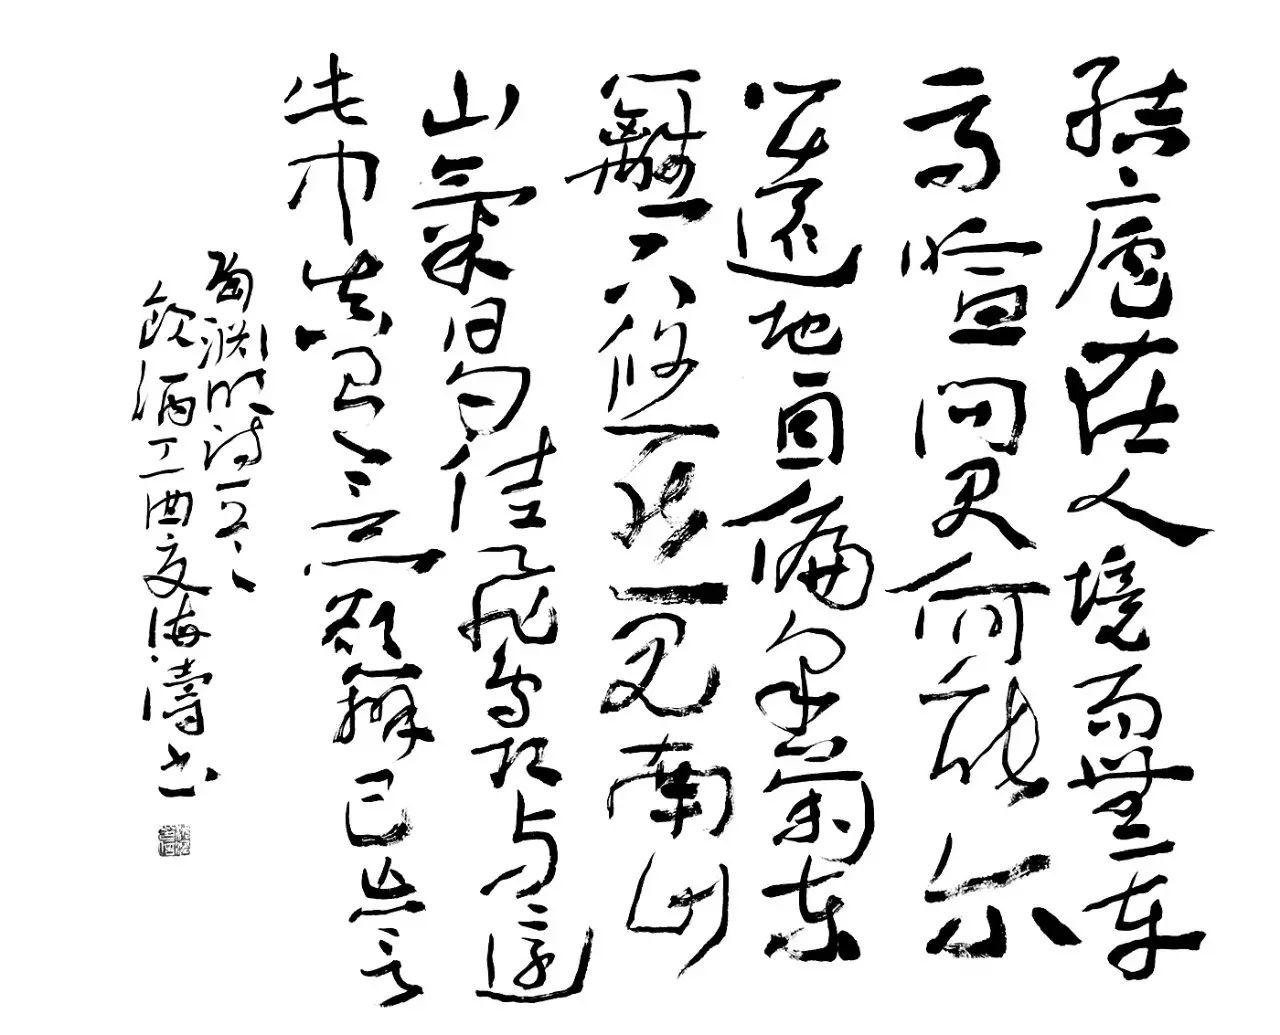 結廬在人境而無車
馬喧問君何能尔
心遠地自偏采菊東
籬下悠然見南山
山氣日夕佳飛鳥相与還
此中真有意欲辨已忘言
陶淵明詩
飲酒丁酉夏海濤書